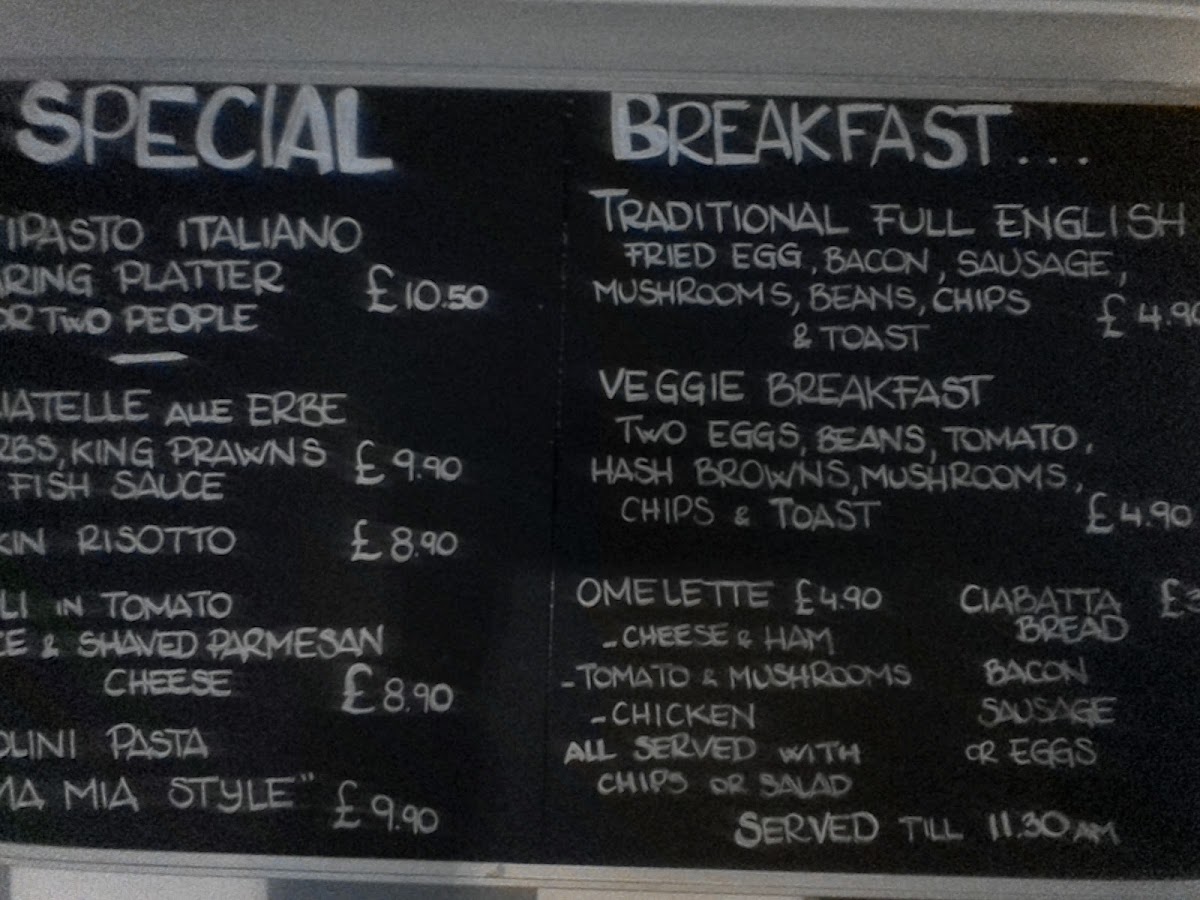 SPECIAL
TIPASTO ITALIANO
ARING PLATTER £10.50
OR TWO PEOPLE
IATELLE ALLE ERBE
RBS, KING PRAWNS £9.90
FISH SAUCE
KIN RISOTTO £8.90
LI IN TOMATO
CE & SHAVED PARMESAN
CHEESE £8.90
OLINI PASTA
MA MIA STYLE" £9.90
BREAKFAST...
TRADITIONAL FULL ENGLISH
FRIED EGG, BACON, SAUSAGE,
MUSHROOMS, BEANS, CHIPS £4.90
& TOAST
VEGGIE BREAKFAST
TWO EGGS, BEANS, TOMATO,
HASH BROWNS, MUSHROOMS,
CHIPS & TOAST £4.90
OMELETTE £4.90
- CHEESE & HAM
- TOMATO & MUSHROOMS
- CHICKEN
ALL SERVED WITH
CHIPS OR SALAD
CIABATTA £3
BREAD
BACON
SAUSAGE
OR EGGS
SERVED TILL 11.30 AM